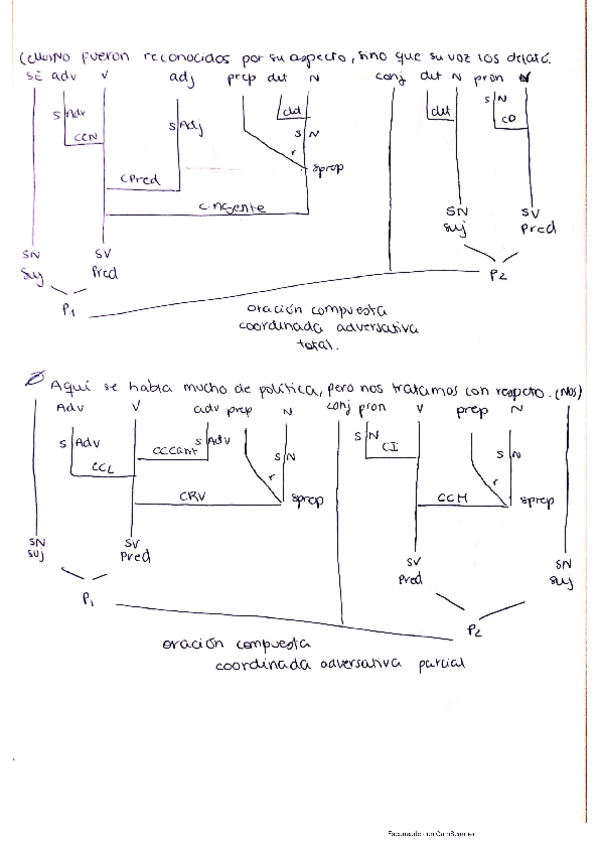 (ellos) No fueron reconocidos por su aspecto, sino que su voz los delató.
SE adv V adj prep det N conj det N pron V
S Adv S Adj det S N det S N
CCN CD
r
CPred sprep
C. Agente
SN SV
Suj Pred
SN SV
Suj Pred
P1 P2
oración compuesta
coordinada adversativa
total.
Ø Aquí se habla mucho de política, pero nos tratamos con respeto. (Nos)
Adv V adv prep N conj pron V prep N
S Adv S Adv S N S N S N
CCCant CI
CCL r r
CRV sprep CCM sprep
SN SV
SUJ Pred
SV SN
Pred Suj
P1 P2
oración compuesta
coordinada adversativa parcial
Escaneado con CamScanner